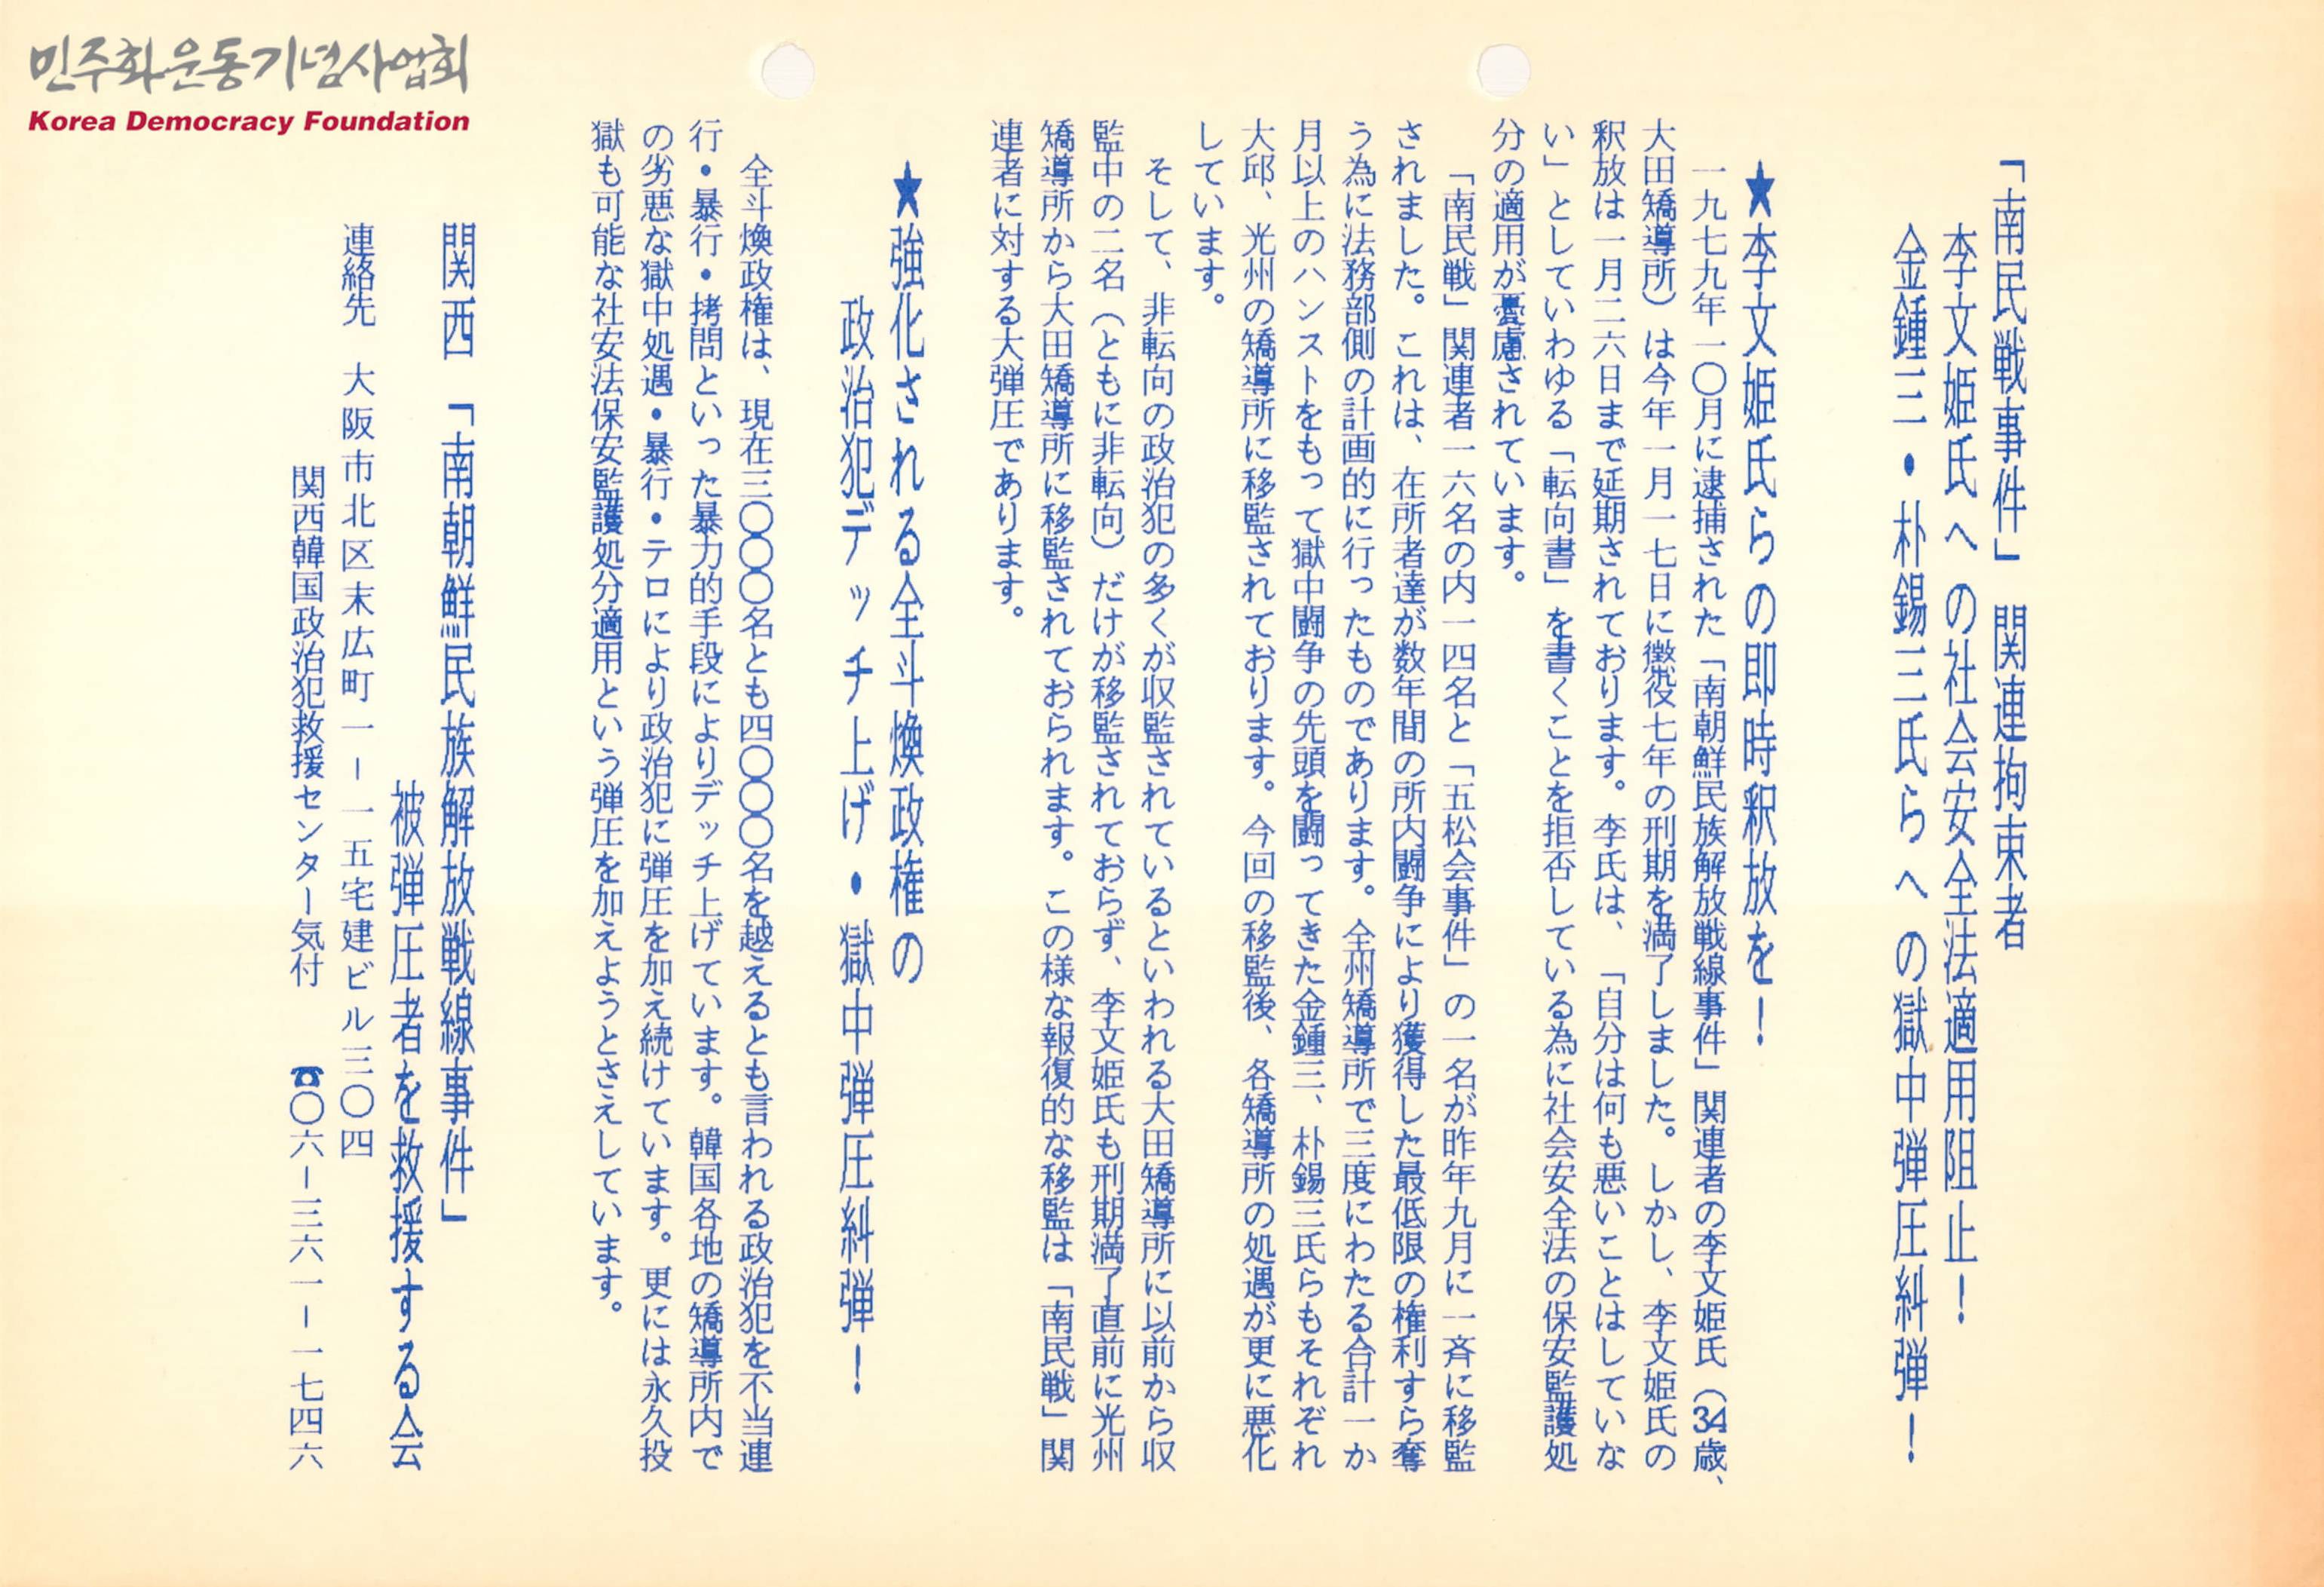 민주화운동기념사업회
Korea Democracy Foundation
「南民戦事件」関連拘束者
李文姫氏への社会安全法適用阻止！
金鍾三・朴錫三氏らへの獄中弾圧糾弾！
★李文姫氏らの即時釈放を！
一九七九年一〇月に逮捕された「南朝鮮民族解放戦線事件」関連者の李文姫氏（34歳、
大田矯導所）は今年一月一七日に懲役七年の刑期を満了しました。しかし、李文姫氏の
釈放は一月二六日まで延期されております。李氏は、「自分は何も悪いことはしていな
い」としていわゆる「転向書」を書くことを拒否している為に社会安全法の保安監護処
分の適用が憂慮されています。
「南民戦」関連者一六名の内一四名と「五松会事件」の一名が昨年九月に一斉に移監
されました。これは、在所者達が数年間の所内闘争により獲得した最低限の権利すら奪
う為に法務部側の計画的に行ったものであります。全州矯導所で三度にわたる合計一か
月以上のハンストをもって獄中闘争の先頭を闘ってきた金鍾三、朴錫三氏らもそれぞれ
大邱、光州の矯導所に移監されております。今回の移監後、各矯導所の処遇が更に悪化
しています。
そして、非転向の政治犯の多くが収監されているといわれる大田矯導所に以前から収
監中の二名（ともに非転向）だけが移監されておらず、李文姫氏も刑期満了直前に光州
矯導所から大田矯導所に移監されておられます。この様な報復的な移監は「南民戦」関
連者に対する大弾圧であります。
★強化される全斗煥政権の
政治犯デッチ上げ・獄中弾圧糾弾！
全斗煥政権は、現在三〇〇〇名とも四〇〇〇名を越えるとも言われる政治犯を不当連
行・暴行・拷問といった暴力的手段によりデッチ上げています。韓国各地の矯導所内で
の劣悪な獄中処遇・暴行・テロにより政治犯に弾圧を加え続けています。更には永久投
獄も可能な社安法保安監護処分適用という弾圧を加えようとさえしています。
関西「南朝鮮民族解放戦線事件」
被弾圧者を救援する会
連絡先　大阪市北区末広町一ー一五宅建ビル三〇四
関西韓国政治犯救援センター気付　☎〇六ー三六一ー一七四六